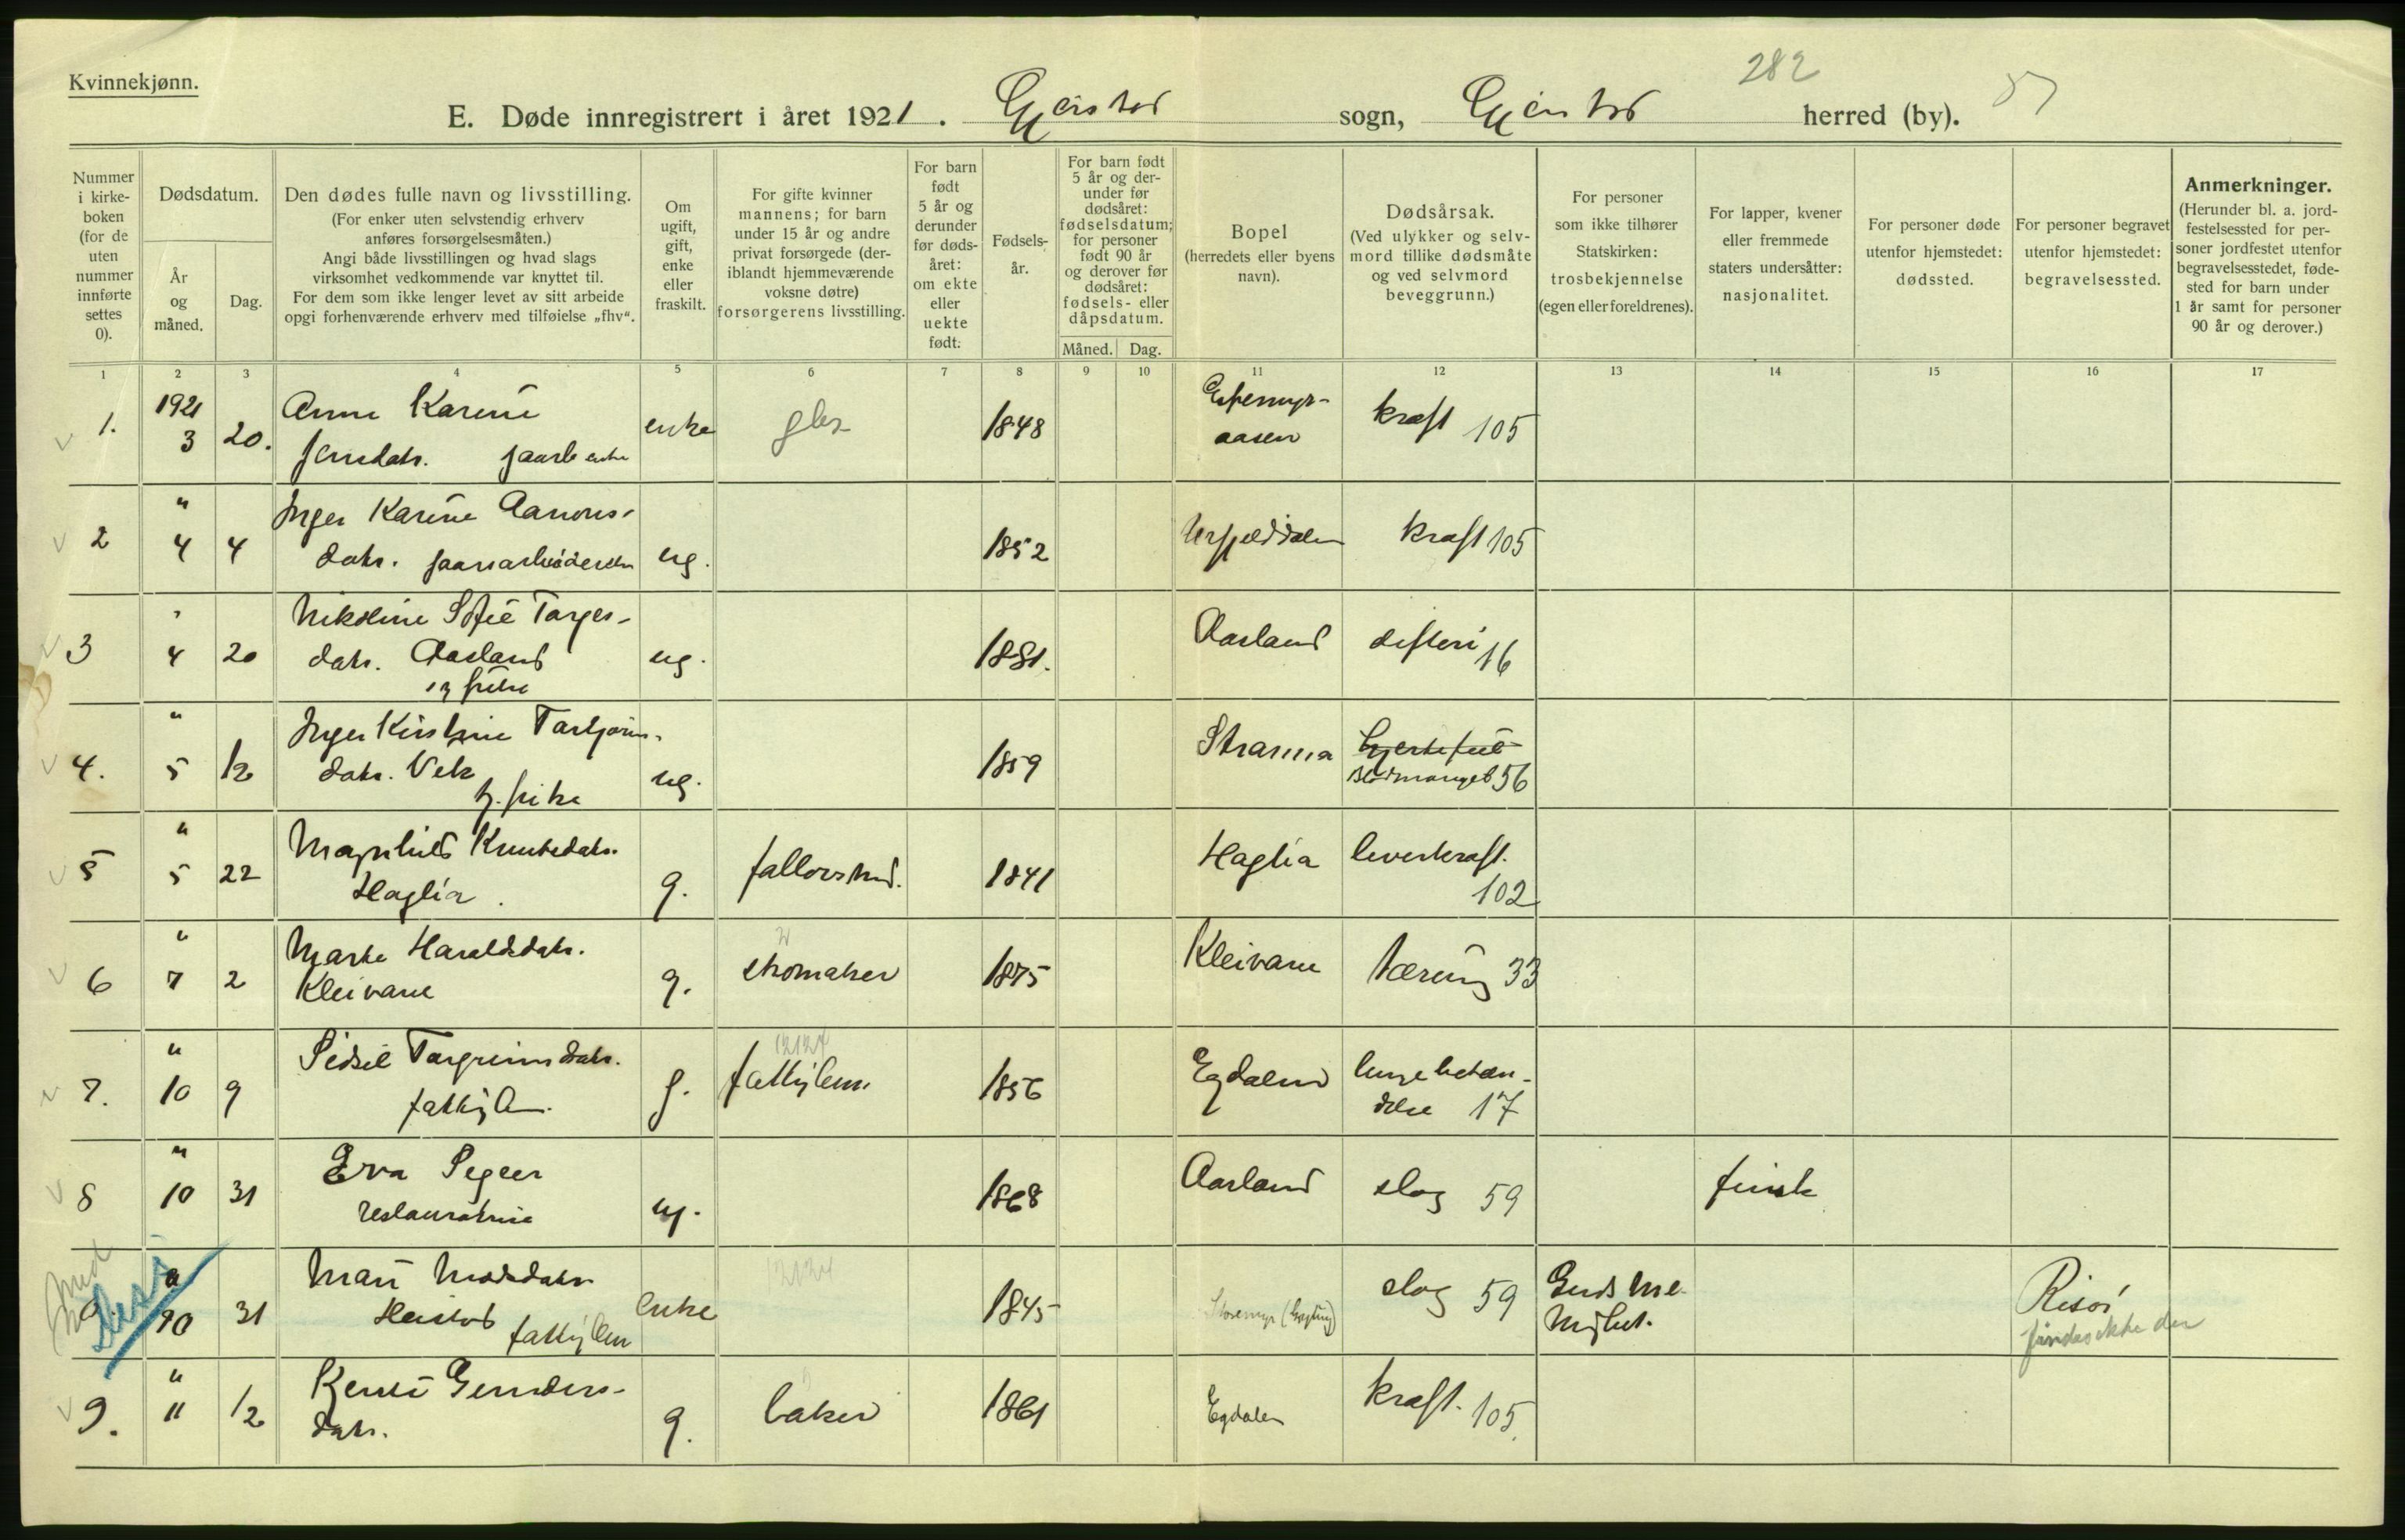 Kvinnekjønn.
282
57
E. Døde innregistrert i året 1921. Gjerstad sogn, Gjerstad herred (by).
Nummer
i kirke-
boken
(for de
uten
nummer
innførte
settes
0).
Dødsdatum.
År
og
måned.
Dag.
Den dødes fulle navn og livsstilling.
(For enker uten selvstendig erhverv
anføres forsørgelsesmåten.)
Angi både livsstillingen og hvad slags
virksomhet vedkommende var knyttet til.
For dem som ikke lenger levet av sitt arbeide
opgi forhenværende erhverv med tilføielse „fhv“.
Om
ugift,
gift,
enke
eller
fraskilt.
For gifte kvinner
mannens; for barn
under 15 år og andre
privat forsørgede (der-
iblandt hjemmeværende
voksne døtre)
forsørgerens livsstilling.
For barn
født
5 år og
derunder
før døds-
året:
om ekte
eller
uekte
født.
Fødsels-
år.
For barn født
5 år og der-
under før
dødsåret:
fødselsdatum;
for personer
født 90 år
og derover før
dødsåret:
fødsels- eller
dåpsdatum.
Måned. Dag.
Bopel
(herredets eller byens
navn).
Dødsårsak.
(Ved ulykker og selv-
mord tillike dødsmåte
og ved selvmord
beveggrunn.)
For personer
som ikke tilhører
Statskirken:
trosbekjennelse
(egen eller foreldrenes).
For lapper, kvener
eller fremmede
staters undersåtter:
nasjonalitet.
For personer døde
utenfor hjemstedet:
dødssted.
For personer begravet
utenfor hjemstedet:
begravelsessted.
Anmerkninger.
(Herunder bl. a. jord-
festelsessted for per-
soner jordfestet utenfor
begravelsesstedet, føde-
sted for barn under
1 år samt for personer
90 år og derover.)
1 2 3 4 5 6 7 8 9 10 11 12 13 14 15 16 17
1. 1921 3 20. Anne Karine
Jensdatr. enke 1848 aasen kraft 105
2 " 4 4 Inger Karine Aanons-
datr. ug. 1852 kraft 105
3 " 4 20 Nikoline Sofie Tarjes-
datr. Aasland ug. 1881. Aasland difteri 16
4. " 5 12 Inger Kirstine
datr. ug. 1859 Stranna hjertefeil
blodmangel 56
5 " 5 22 Magnhild Knutsdatr.
Haglia. g. 1841 Haglia leverkraft.
102
6 " 7 2 Marte Haraldsdatr.
Kleivane g. skomaker 1875 Kleivane tæring 33
7. " 10 9 Sidsel Targrimsdatr.
fattiglem. g. fattiglem 1856 Egdalen lungebetæn-
delse 17
8 " 10 31 Eva
ug. 1868 Aasland slag 59 finsk
" 10 31 Mari Madsdatr.
fattiglem enke 1845 slag 59 Guds Me-
nighet. Risør
findes ikke der
9. " 11 12 Gunders-
datr. g. baker 1861 Egdalen kraft. 105.